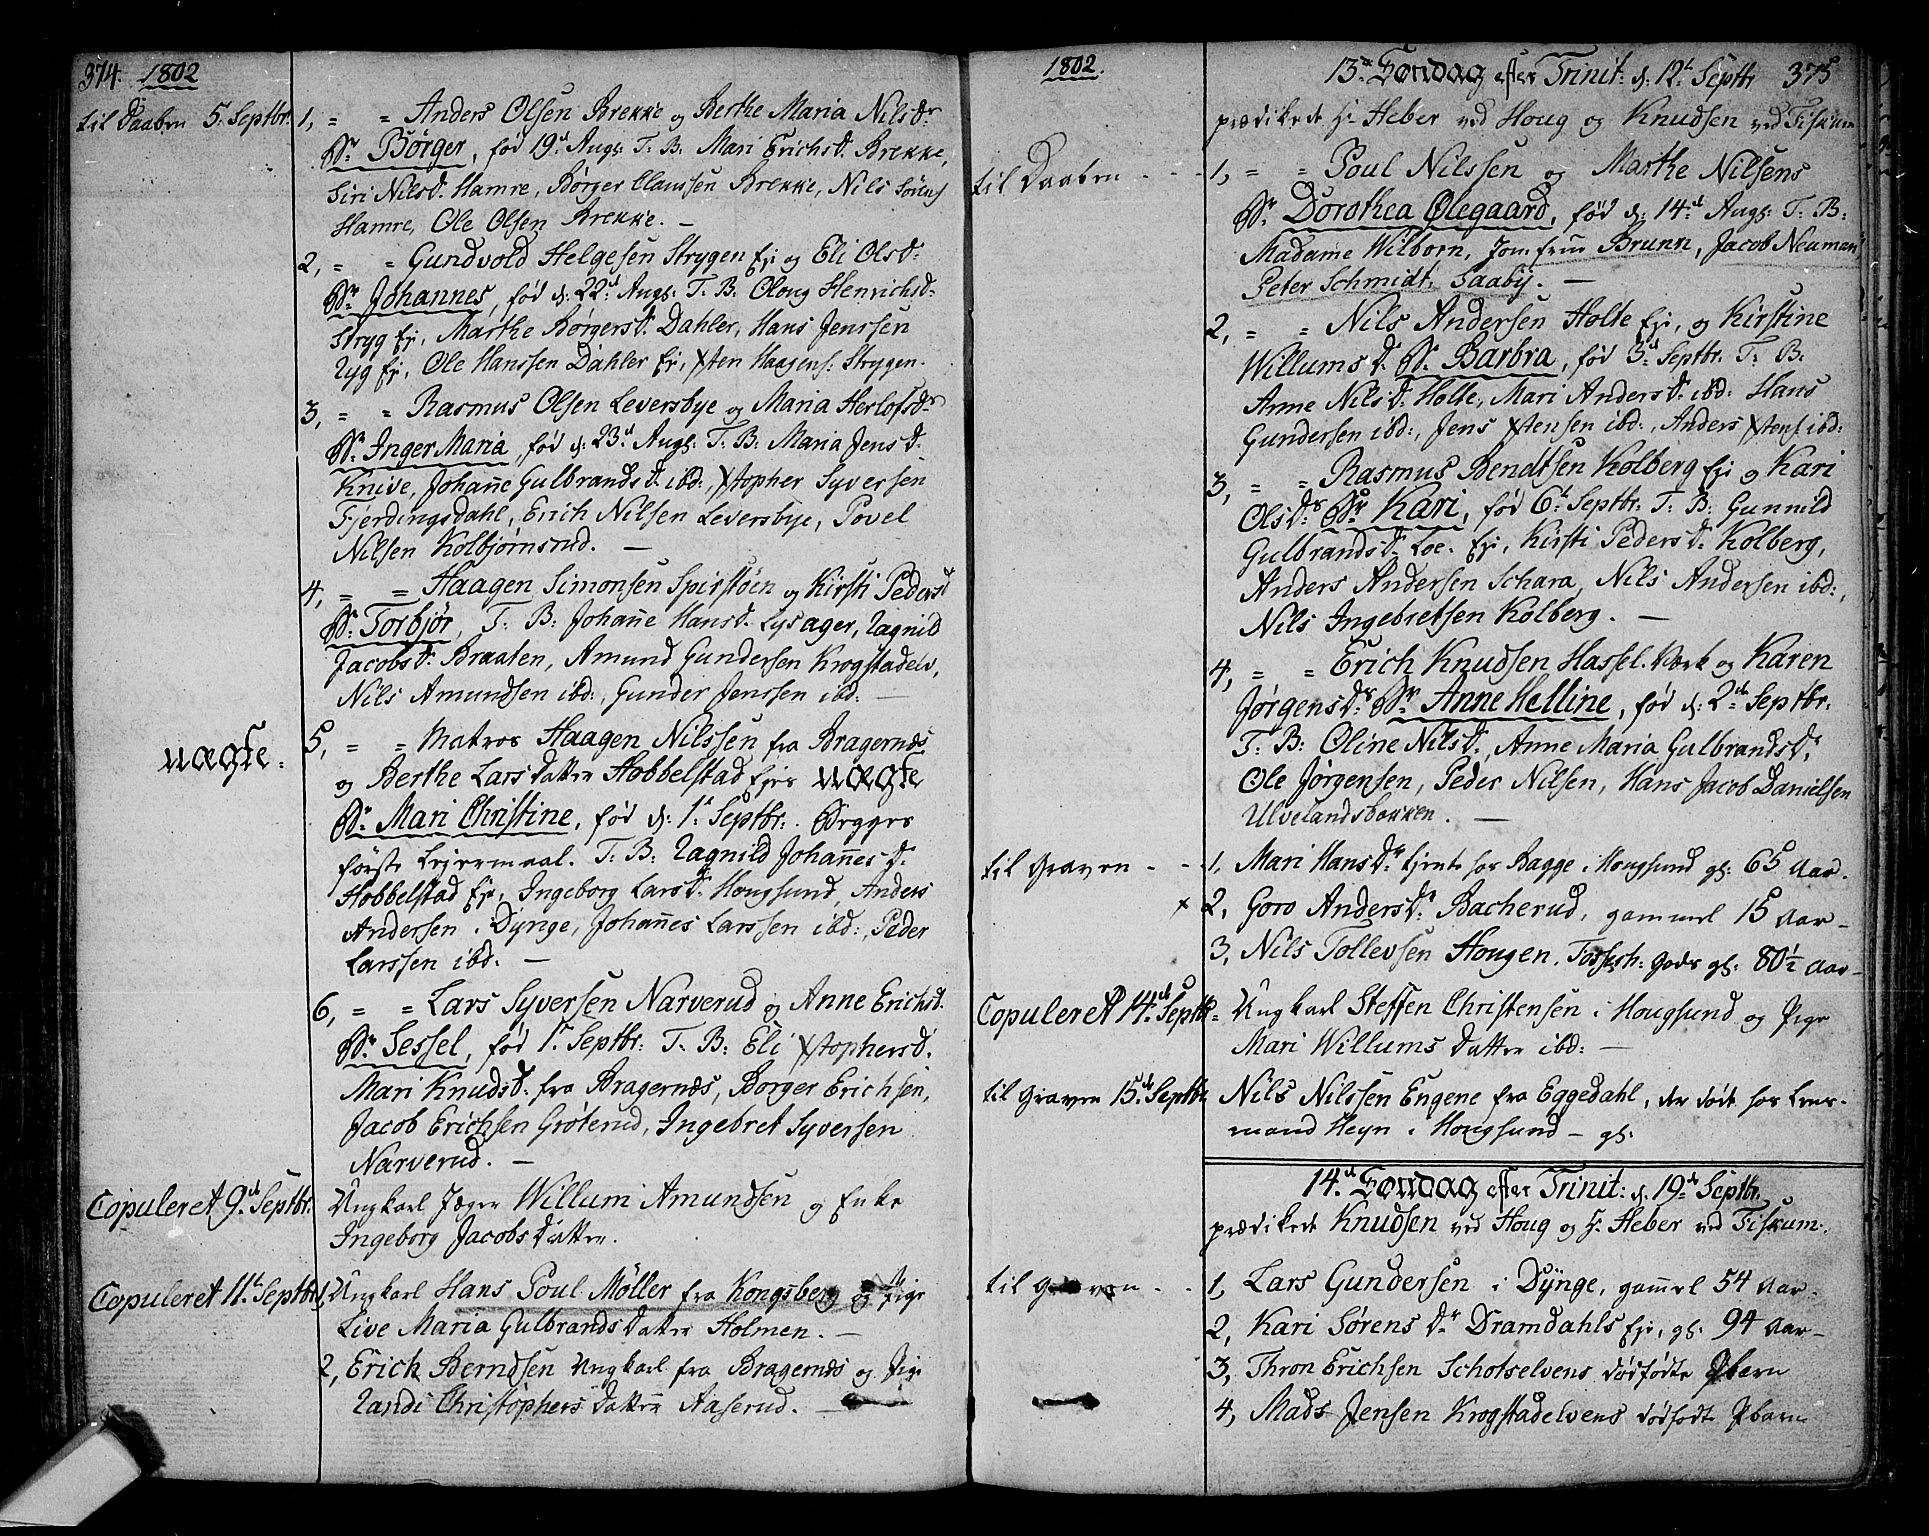 374. 1802
til Daaben 5. Septbr.
1, " " Anders Olsen Brekke og Berthe Maria Nilsdr
Br. Börger, fød 19. Augs: T: B: Mari Erichsd. Brekke,
Siri Nilsd. Hamre, Börger Clanssen Brekke, Nils Sörens
Hamre, Ole Olsen Brekke. —
2, " " Gundvold Helgesen Strygen Ej: og Eli Olsd:
Br. Johannes, fød d: 22d Augs: T: B: Oloug Henrichsd.
Stryg Ej, Marthe Börgersd. Dahler, Hans Jenssen
Ryg Ej, Ole Hanssen Dahler Ej, Xsten Haagens: Strygen.
3, " " Rasmus Olsen Leversbye og Maria Herlofsdr
Br. Inger Maria, fød d: 23d Augs: T: B: Maria Jensd.
Knive, Johan̄e Gulbrandsd. ibd:, Xstopher Syversen
Fjerdingsdahl, Erich Nilsen Leversbye, Povel
Nilsen Kolbjørnsrud. —
4, " " Haagen Simonsen Spirstöen og Kirsti Pedersd
Br: Torbjør, T: B: Johan̄e Hansd. Lysager, Ragnild
Jacobsd. Braaten, Amund Gundersen Krogstadelv,
Nils Amundsen ibd:, Gunder Jenssen ibd: —
uægte.
5, " " Matros Haagen Nilssen fra Bragernæs
og Berthe Larsdatter Hobbelstad Ejes uægte
Br. Mari Christine, fød d: 1. Septbr. Begges
første Lejermaal. T: B: Ragnild Johan̄esd.
Hobbelstad Ej, Ingeborg Larsd. Hougsund, Anders
Andersen i Dynge, Johan̄es Larssen ibd:, Peder
Larssen ibd. —
6, " " Lars Syversen Narverud og Anne Erichsd.
Br. Sessel, fød 1. Septbr: T: B: Eli Xstophersd.
Mari Knudsd: fra Bragernæs, Borger Erichsen,
Jacob Erichsen Gröterud, Ingebret Syversen
Narverud. —
Copuleret 9d Septbr. Ungkarl Jæger Willum Amundsen og Enke
Ingeborg Jacobsdatter.
Copuleret 11t Septbr 1, Ungkarl Hans Poul Møller fra Kongsberg og Pige
Live Maria Gulbrandsdatter Holmen. —
2, Erich Berndsen Ungkarl fra Bragernæs og Pige
Randi Christophersdatter Aaserud. —
1802.
13de Søndag efter Trinit: d: 12t Septbr 375
prædikede Hr Heber ved Houg og Knudsen ved Fiskum
til Daaben - - -
1, " " Poul Nilssen og Marthe Nilsens
Br. Dorothea Olegaard, fød d: 14d Augs: T: B:
Madame Wilborn, Jomfrue Brunn, Jacob Neuman
Peter Schmidt, Saaby. —
2, " " Nils Andersen Holte Ej, og Kirstine
Willumsd. Br. Barbra, fød 3d Septbr: T: B:
Anne Nilsd. Holte, Mari Andersd. ibd: Hans
Gundersen ibd:, Jens Xstensen ibd:, Anders Xstens ibd:
3, " " Rasmus Bendtsen Kolberg Ej: og Kari
Olsdr Br. Kari, fød 6t Septbr: T: B: Gunnild
Gulbrandsd. Loe. Ej, Kirsti Pedersd. Kolberg,
Anders Andersen Schara, Nils Andersen ibd:,
Nils Ingebretsen Kolberg. —
4, " " Erich Knudsen Hassel. Værk og Karen
Jørgensdr Br. Anne Helline, fød d: 2de Septbr.
T: B: Oline Nilsd:, Anne Maria Gulbrandsd.
Ole Jørgensen, Peder Nilsen, Hans Jacob Danielsen
Ulvelandsbakken. —
til Graven - - - 1, Mari Hansdr tjente hos Bagge i Hougsund gl: 65 Aar.
x 2, Goro Andersd. Bacherud, gammel 15 Aar —
3, Nils Tollevsen Hougen, Gods gl: 80½ Aar —
Copuleret 14d Septbr: Ungkarl Steffen Christensen i Hougsund og Pige
Mari Willumsdatter ibd: —
til Graven 15de Septbr Nils Nilssen Engene fra Eggedahl, der døde hos Lens-
mand Heyn i Hougsund — gl:
14de Søndag efter Trinit: d: 19de Septbr.
prædikede Knudsen ved Houg og H: Heber ved Fiskum.
til Graven - - -
1, Lars Gundersen i Dynge, gam̄el 54 Aar.
2, Kari Sørensdr Dramdahls Ej, gl: 94 Aar —
3, Thron Erichsen Schotselvens dödfödte Pbarn
4, Mads Jensen Krogstadelvens dödfödte Pbarn